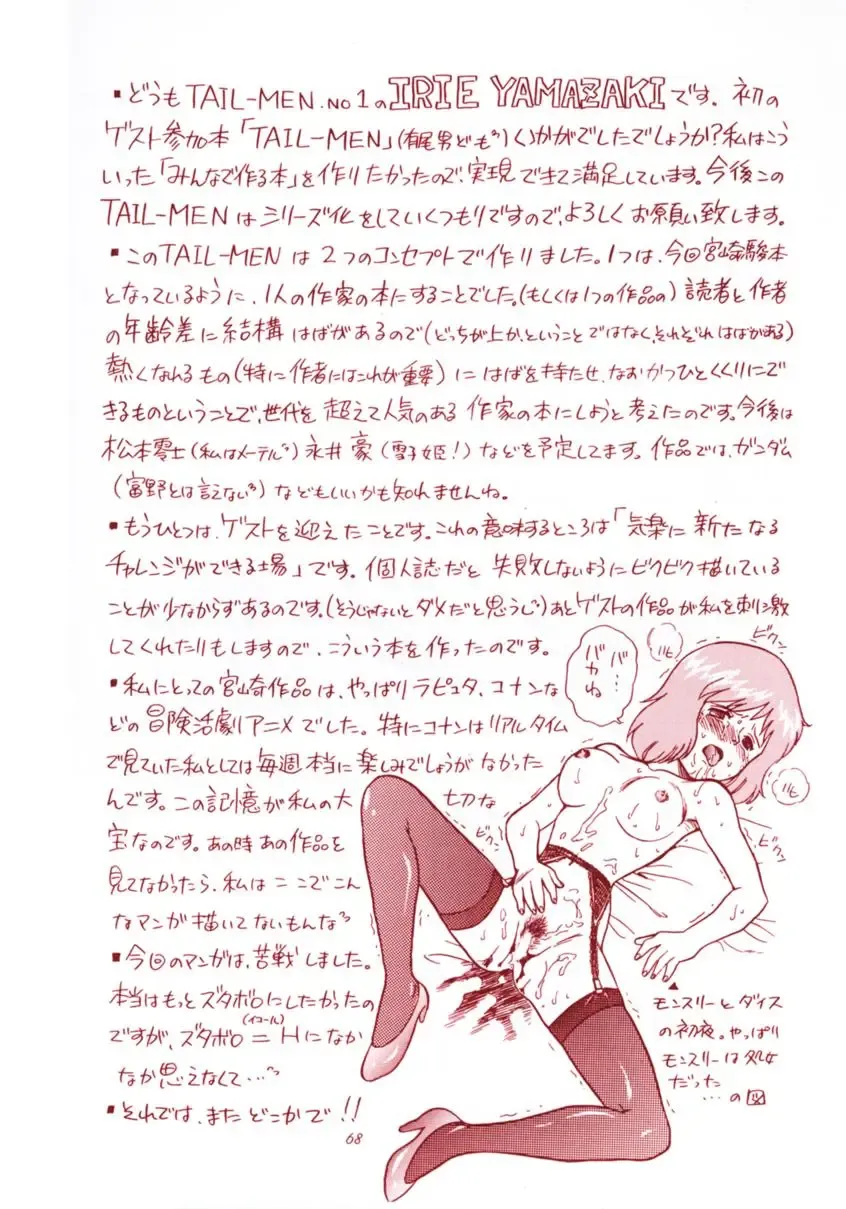 ▪どうもTAIL-MEN.NO1のIRIE YAMAZAKIです。初の
ゲスト参加本「TAIL-MEN」(有尾男ども)いかがでしたでしょうか?私はこう
いった「みんなで作る本」を作りたかったので、実現できて満足しています。今後この
TAIL-MENはシリーズ化をしていくつもりですので、よろしくお願い致します。
▪このTAIL-MENは2つのコンセプトで作りました。1つは、今回宮崎駿本
となっているように、1人の作家の本にすることでした。(もしくは1つの作品の)読者と作者
の年齢差に結構はばがあるので(どっちが上か、ということではなく、それぞれはばがある)
熱くなれるもの(特に作者にはこれが重要)にはばを持たせ、なおかつひとくくりにで
きるものということで、世代を超えて人気のある作家の本にしようと考えたのです。今後は
松本零士(私はメーテル)永井豪(雪子姫!)などを予定してます。作品では、ガンダム
(富野とは言えない)などもいいかも知れませんね。
▪もうひとつは、ゲストを迎えたことです。これの意味するところは「気楽に新たなる
チャレンジができる場」です。個人誌だと失敗しないようにビクビク描いている
ことが少なからずあるのです。(そうじゃないとダメだと思うし)あとゲストの作品が私を刺激
してくれたりもしますので、こういう本を作ったのです。
▪私にとっての宮崎作品は、やっぱりラピュタ、コナンな
どの冒険活劇アニメでした。特にコナンはリアルタイム
で見ていた私としては毎週本当に楽しみでしょうがなかった
んです。この記憶が私の大切な
宝なのです。あの時あの作品を
見てなかったら、私はここでこん
なマンガ描いてないもんな
▪今回のマンガは、苦戦しました。
本当はもっとズタボロにしたかったの
ですが、ズタボロ=(イコール)Hになか
なか思えなくて…
▪それでは、またどこかで!!
バ…
バカね
ビクン
ビクン
ビクン
モンスリーとダイス
の初夜。やっぱり
モンスリーは処女
だった
…の図
68